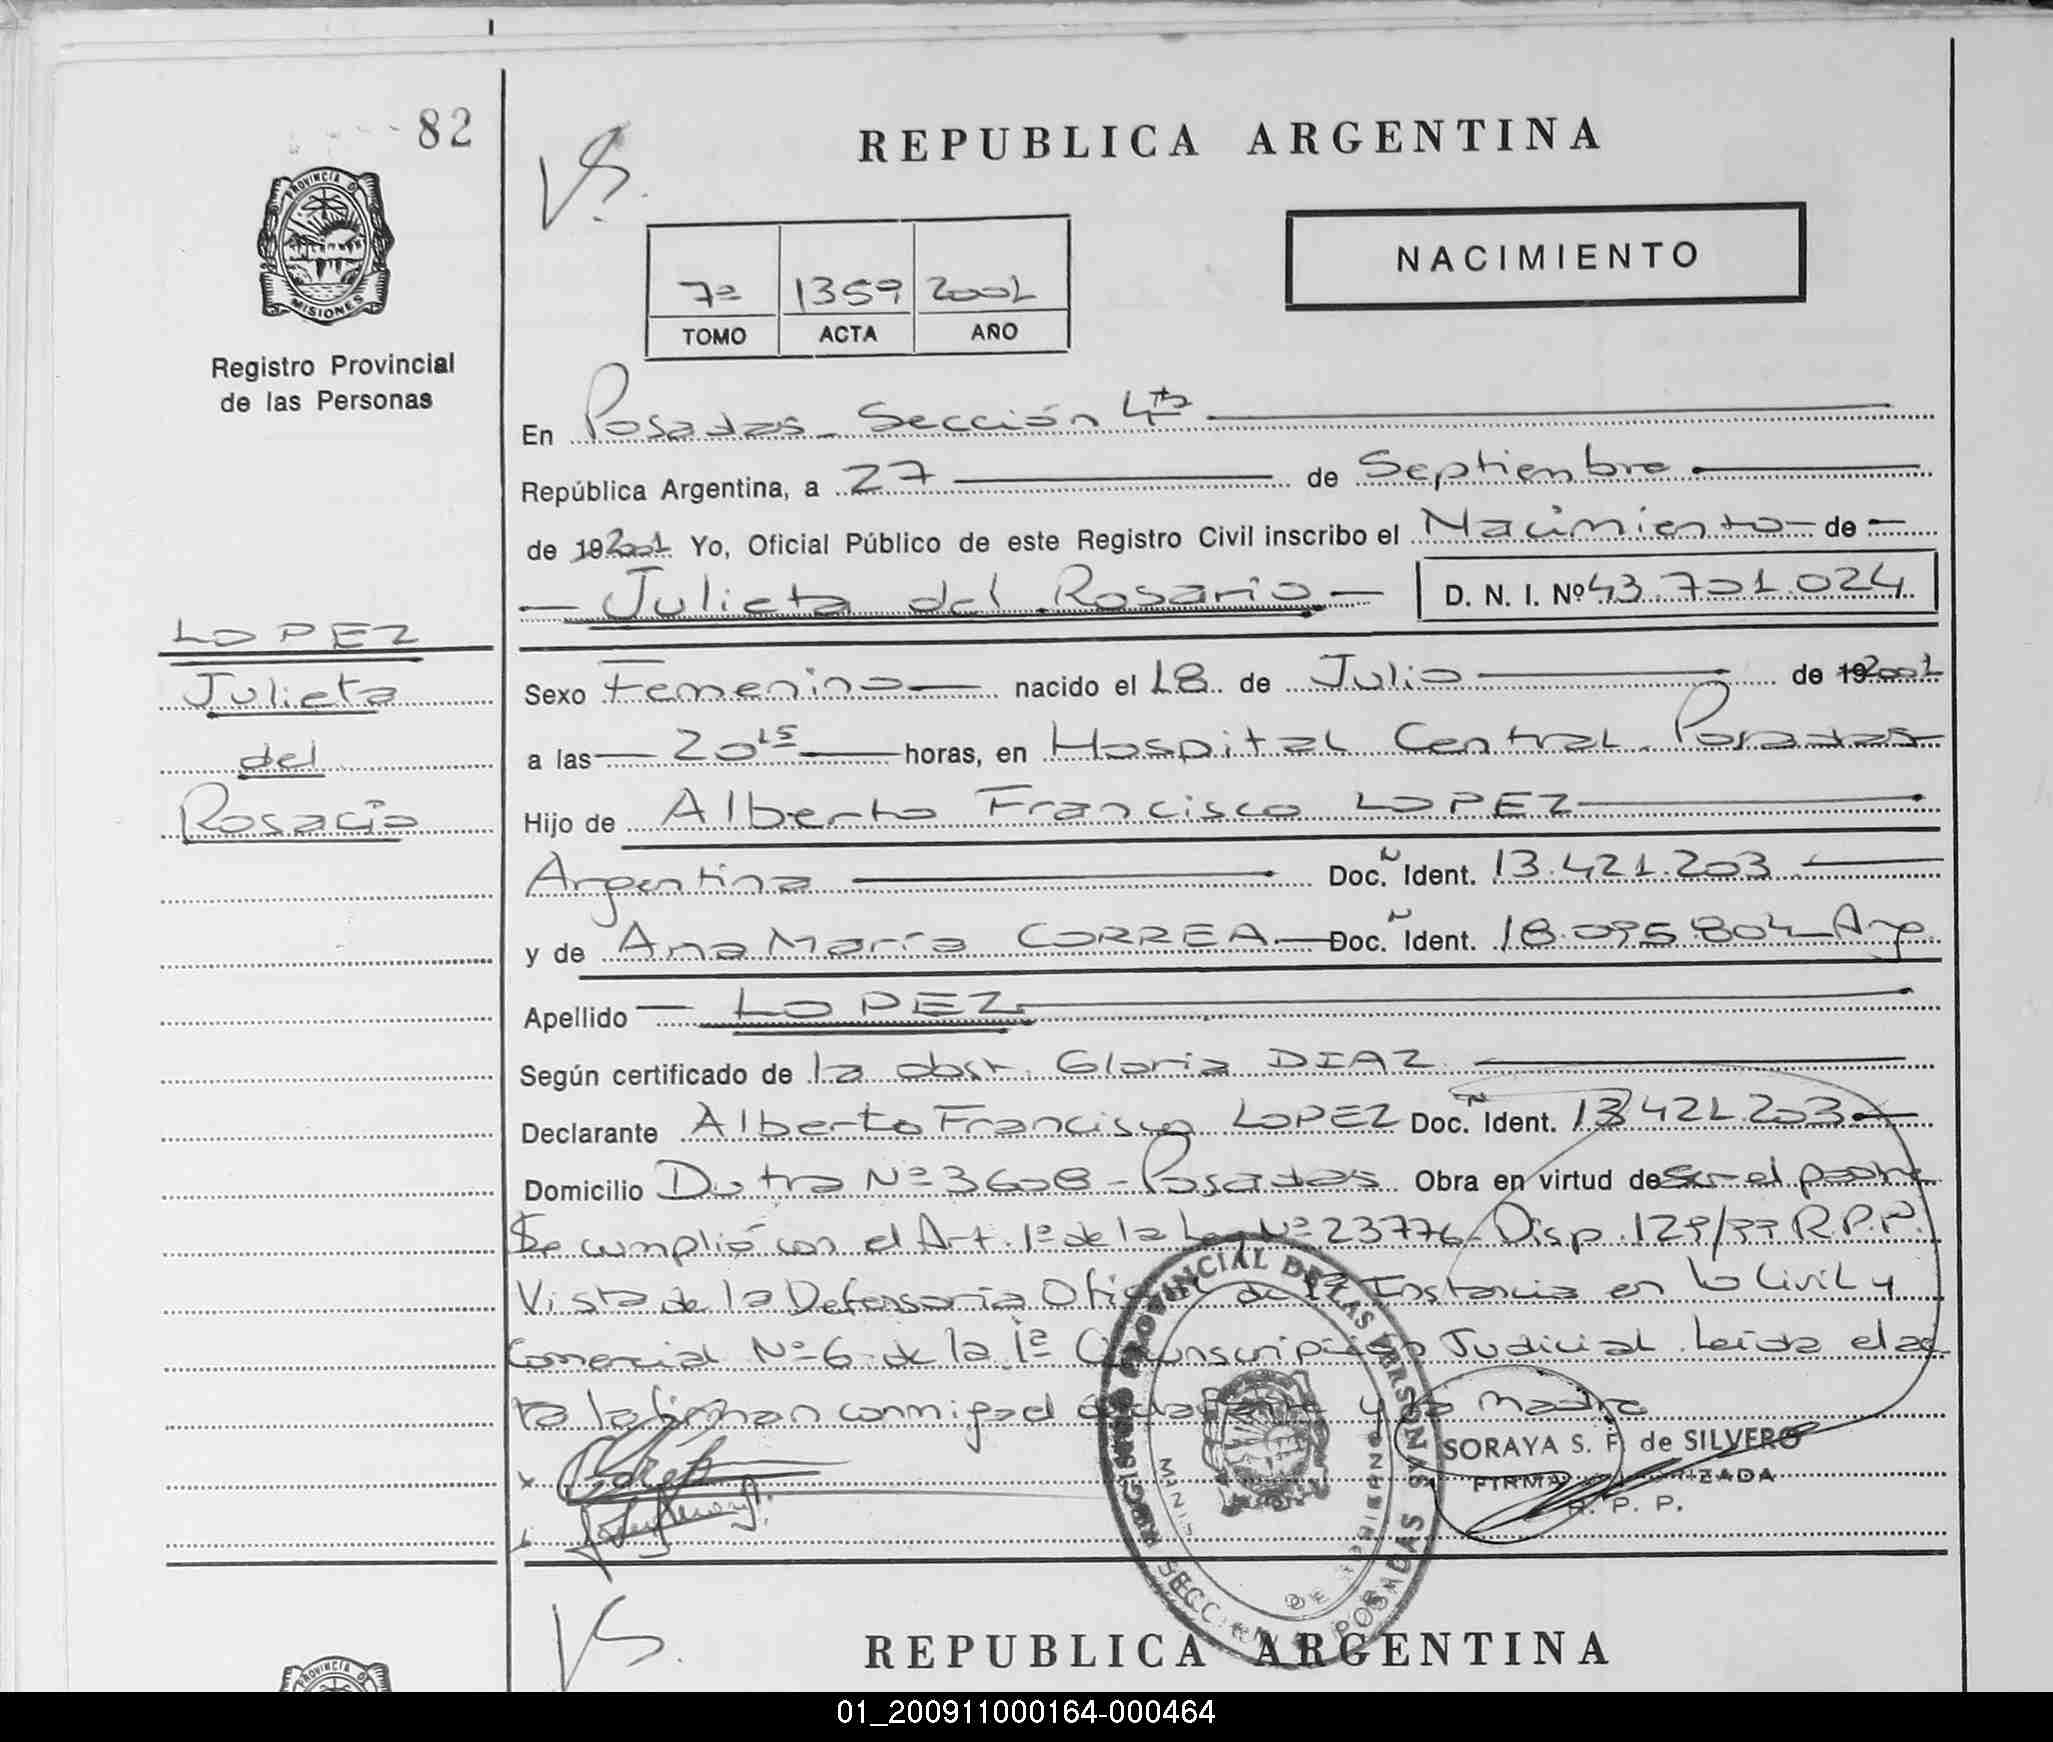 82
REPUBLICA ARGENTINA
PROVINCIA D
MISIONES
NACIMIENTO
7ª 1359 2001
TOMO ACTA AÑO
Registro Provincial
de las Personas
En Posadas - Sección 4ta
República Argentina, a 27 de Septiembre
de 192001 Yo, Oficial Público de este Registro Civil inscribo el Nacimiento de
Julieta del Rosario D. N. I. Nº 43.701.024
LOPEZ
Julieta
del
Rosario
Sexo Femenino nacido el 18 de Julio de 192001
a las 20 15 horas, en Hospital Central Posadas
Hijo de Alberto Francisco LOPEZ
Argentina Doc. N Ident. 13.421.203
y de Ana María CORREA Doc. N Ident. 18.095.804 Arg.
Apellido LOPEZ
Según certificado de la obst. Gloria DIAZ
Declarante Alberto Francisco LOPEZ Doc. N Ident. 13.421.203
Domicilio Dutra Nº 3608 - Posadas Obra en virtud de ser el padre
Se cumplió con el Art. 1º de la Ley Nº 23776 - Disp. 129/99 R.P.P.
Vista de la Defensoría Oficial de 1ª Instancia en lo Civil y
Comercial Nº 6 de la 1ª Circunscripción Judicial. Leída el ac
ta la firman conmigo el declarante y la madre
SORAYA S. F. de SILVERO
FIRMA AUTORIZADA
R. P. P.
REGISTRO PROVINCIAL DE LAS PERSONAS
POSADAS
REPUBLICA ARGENTINA
PROVINCIA D
01_200911000164-000464